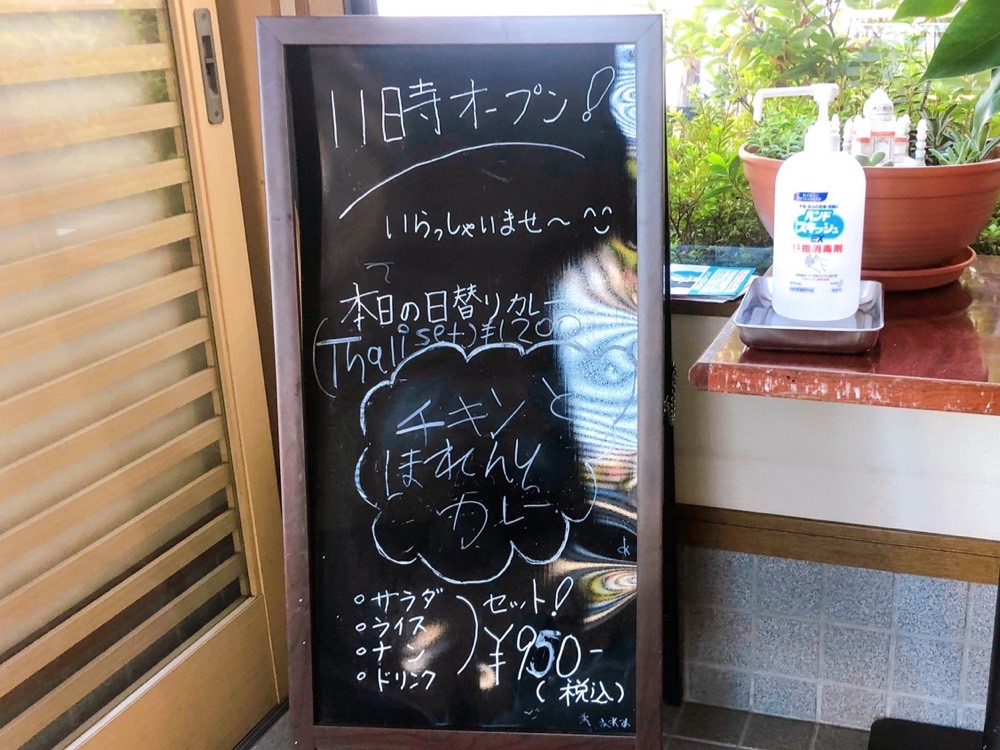 11時オープン!
いらっしゃいませ～
本日の日替りカレー
(Thali set)¥1200
チキンと
ほれんそ
カレー
○サラダ
○ライス
○ナン
○ドリンク
セット!
¥950-
(税込)
ハンド
スキッシュ
EX
手指消毒剤